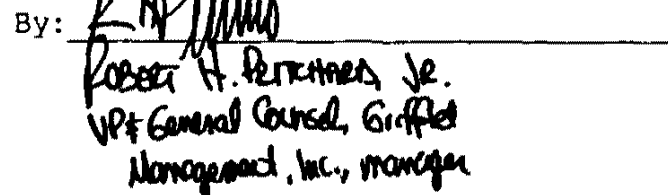 By:
Robert H. Pritchard, Jr.
VP & General Counsel, Grifflet
Management, Inc., manager